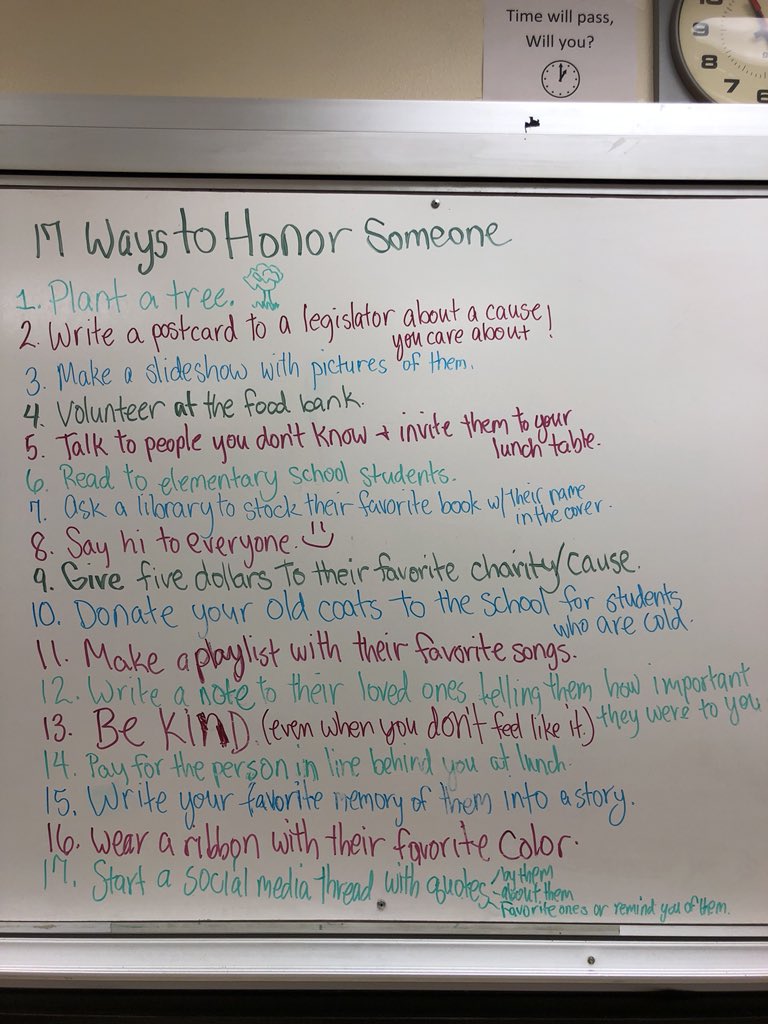 Time will pass,
Will you?
10
9
8
7
6
17 Ways to Honor Someone
1. Plant a tree.
2. Write a postcard to a legislator about a cause!
you care about
3. Make a slideshow with pictures of them.
4. Volunteer at the food bank.
5. Talk to people you don't know + invite them to your
lunch table.
6. Read to elementary school students.
7. Ask a library to stock their favorite book w/ their name
in the cover.
8. Say hi to everyone.
9. Give five dollars to their favorite charity/cause.
10. Donate your old coats to the school for students
who are cold.
11. Make a playlist with their favorite songs.
12. Write a note to their loved ones telling them how important
they were to you
13. Be KIND. (even when you don't feel like it.)
14. Pay for the person in line behind you at lunch.
15. Write your favorite memory of them into a story.
16. Wear a ribbon with their favorite color.
17. Start a social media thread with quotes
by them
about them
Favorite ones or remind you of them.